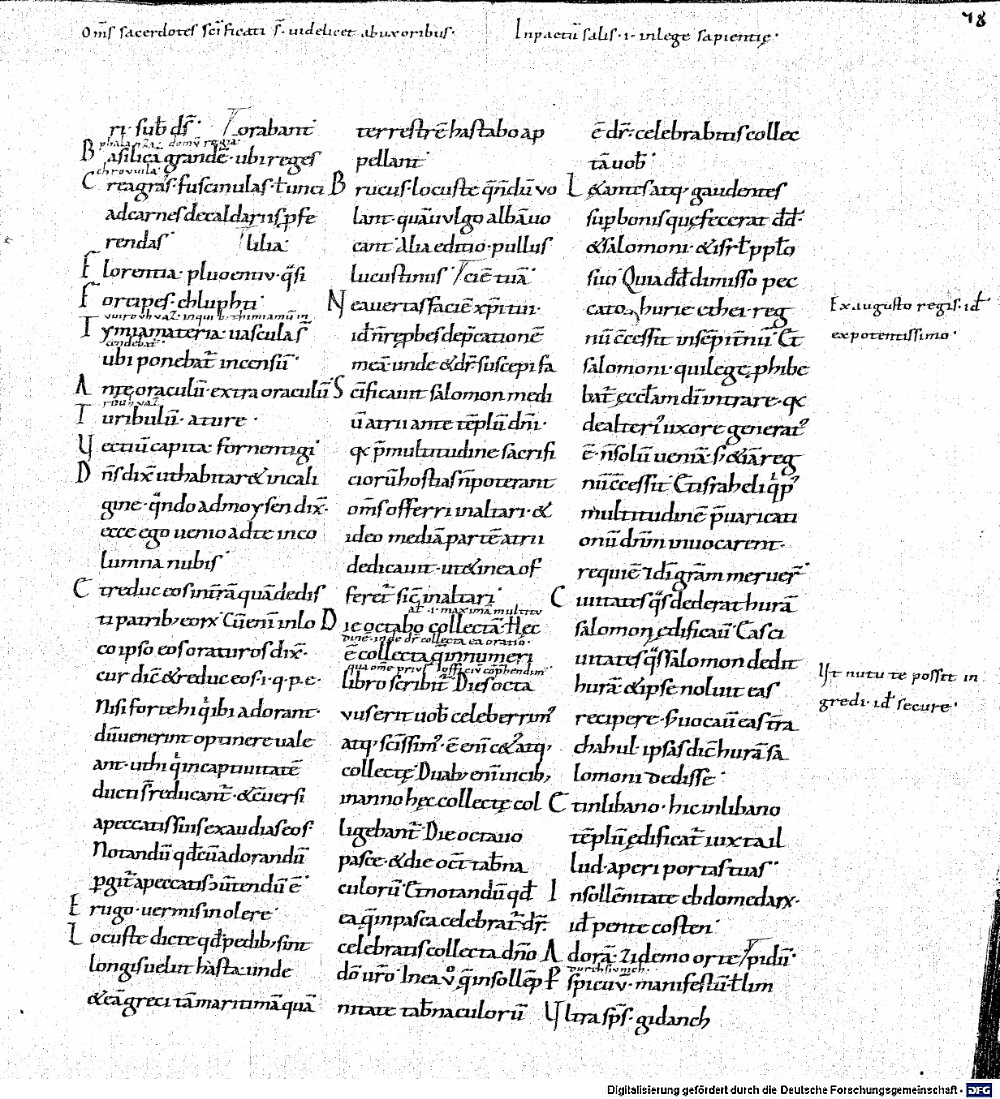 78
Om̄s sacerdotes sc̄ificati s̄· uidelicet abuxoribus·
Inpactū salis· ·i· inlege sapientię·
ri· sub dr̄· Torabant
phalanzaz domū regia·
B asilica grandē· ubi reges
chrouuila·
C reagras· fuscinulas· ł unci
adcarnes decaldariis ꝑfe
rendas· lilia·
F lorentia· pluoentiv· q̄si
F orcipes· chluphti·
T ymiamateria· uascula s̄
ubi ponebat̄ incensū·
A nte oraculū· extra oraculū
T uribulū· a ture·
V ectiū capita· fornentigi
D n̄s dix̄ ut habitar& incali
gine· q̄ndo ad moysen dix̄·
ecce ego uenio ad te inco
lumna nubis·
E t reduc eos int̄rā quā dedis
ti patrib; eorꝝ Cū enī inlo
co ipso eos oraturos dix̄·
cur dic̄ & reduc eos· i· q· p· e·
Nisi forte hi q̇ ibi adorant·
dū uenerint optinere uale
ant· ut hi q̇ incaptiuitatē
ducti s̄ reducant̄· & c̄uersi
apeccatis sins exaudias eos·
Notandū qd̄ cū adorandū
ꝑgit̄ apeccatis ɔ̄uertendū ē·
E rugo· uermis in olere·
L ocuste dicte qd̄ pedib; sint
longis uelut hasta· unde
& eā greci tā maritimā quā
terrestrē hastabo ap
pellant·
B rucus· locuste q̄ndū uo
lant· quā uulgo albā uo
cant· Alia editio· pullus
lucustinus· faciē tuā·
N e auertas faciē xp̄i tui·
id n̄ rep̄bes dep̄cationē
meā· unde & dr̄· suscepi fa
S c̄ificauit salomon medi
ū atrii ante tēplū dn̄i·
qꝫ p̄ multitudine sacrifi
ciorū hostias n̄ poterant
om̄s offerri in altari· &
ideo mediā partē atrii
dedicauit· ut & in ea of
feret̄ sic̄ in altari·
D ie octabo collectā· Hęc
dine· inde dr̄ collecta ea oratio·
ē collecta q̄ innumeri
libro scribit̄ Dies octa
vus erit uob̄ celeberrim᷒
atq; sc̄issim᷒·
collectę· Duab; enī uicib;
in anno hęc collectę col
ligebant̄· Die octauo
pasce· & die oct̄ tab̄na
culorū· Et notandū qd̄
ea q̄ in pasca celebrat̄· dr̄·
celebratis collecta dn̄o
dō ur̄o· In ea ū q̄ in sollēp
nitate tab̄naculorū
ē dr̄· celebrabitis collec
tā uob̄·
L &antes atq; gaudentes
suꝑ bonis quę fecerat dd̄·
& salomoni· & isrł ppło
suo· Quia dd̄ dimisso pec
cato hurie ethei· reg
nū c̄cessit insēpit̄nū· Et
salomoni· qui lege ꝓhibe
bat̄ eccłam dī intrare· qꝫ
de alteri᷒ uxore generat᷒
ē· n̄ solū ueniā· s; & iā reg
nū c̄cessit· Et israheli q̇ p᷒
multitudinē p̄uaricati
onū dn̄m inuocarent·
requiē & dī gr̄am meruer̄·
C iuitates q̄s dederat hurā
salomon ędificauī· Eas ci
uitates q̄s salomon dedit
hurā· & ipse noluit eas
recipere· s; uocauī eas t̄ra
chabul· ipsas dic̄ hurā sa
lomoni dedisse·
E t in libano· hic in libano
tēplū ędificat̄ iuxta il
lud· aperi portas tuas·
I nsollēnitate ebdomedarꝝ·
id pente costen·
A dorā·
durihsiunich·
P spicuv· manifestū· ł lim
V ltra sp̄s· gidanch
Ex augusto regis· id̄
expotentissimo·
Vt nutu te possit in
gredi· id̄ secure·
Digitalisierung gefördert durch die Deutsche Forschungsgemeinschaft - DFG